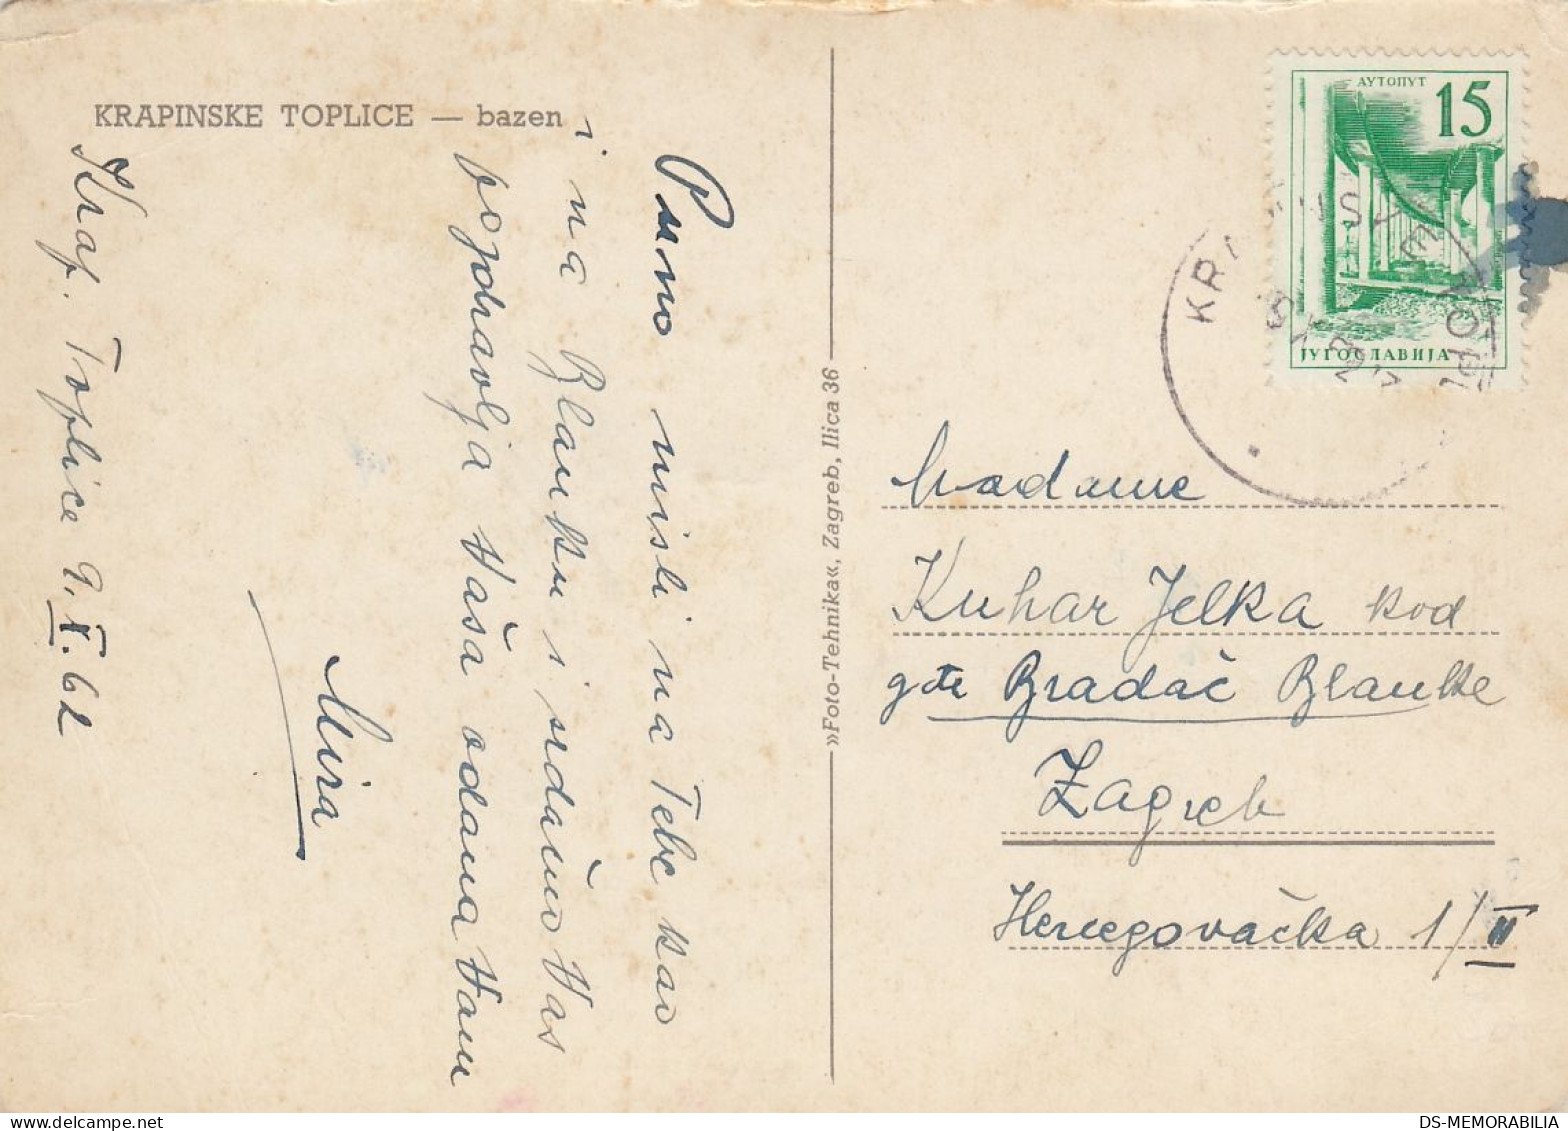 KRAPINSKE TOPLICE — bazen
Krap. Toplice 9.X.62
Puno misli na Tebe kao
i na Blanku i srdačno Vas
pozdravlja Vaša odana Vam
Mira
»Foto-Tehnika«, Zagreb, Ilica 36
АУТОПУТ
15
ЈУГОСЛАВИЈА
Madame
Kuhar Jelka kod
gđe Bradač Blanke
Zagreb
Hercegovačka 1/II
DS-MEMORABILIA